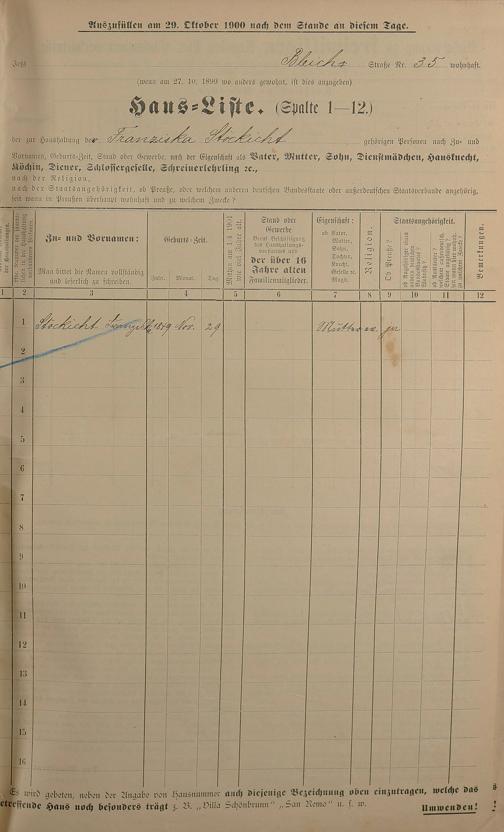 Auszufüllen am 29. Oktober 1900 nach dem Stande an diesem Tage.
Jetzt Bleichs Straße Nr. 35 wohnhaft.
(wenn am 27. 10. 1899 wo anders gewohnt, ist dies anzugeben)
Haus-Liste. (Spalte 1—12.)
der zur Haushaltung der Franziska Stockicht gehörigen Personen nach Zu- und
Vornamen, Geburts-Zeit, Stand oder Gewerbe, nach der Eigenschaft als Vater, Mutter, Sohn, Dienstmädchen, Hausknecht,
Köchin, Diener, Schlossergeselle, Schreinerlehrling ꝛc.,
nach der Religion,
nach der Staatsangehörigkeit, ob Preuße, oder welchem anderen deutschen Bundesstaate oder außerdeutschen Staatsverbande angehörig,
seit wann in Preußen überhaupt wohnhaft und zu welchem Zwecke?
Zu- und Vornamen:
Man bittet die Namen vollständig
und leserlich zu schreiben.
Geburts-Zeit.
Jahr. Monat. Tag.
Stand oder
Gewerbe
der über 16
Jahre alten
Familienmitglieder.
Eigenschaft:
ob Vater,
Mutter,
Sohn,
Tochter,
Knecht,
Geselle ꝛc.
Magd.
Religion.
Staatsangehörigkeit.
Ob Preuße?
Bemerkungen.
1 2 3 4 5 6 7 8 9 10 11 12
1 Stockicht Nov. 29 Mutter ja
2
3
4
5
6
7
8
9
10
11
12
13
14
15
16
Es wird gebeten, neben der Angabe von Hausnummer auch diejenige Bezeichnung oben einzutragen, welche das
betreffende Haus noch besonders trägt z. B. „Villa Schönbrunn" „San Remo" u. s. w.
Umwenden!